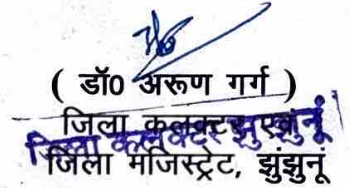 ( डॉ0 अरूण गर्ग )
जिला कलक्टर एवं
जिला कलक्टर झुंझुनूं
जिला मजिस्ट्रेट, झुंझुनूं